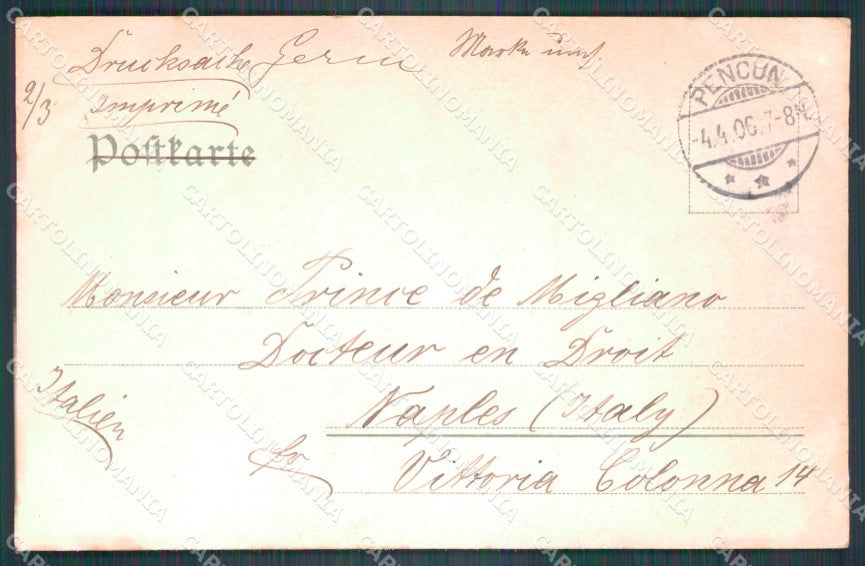 Drucksache Germ Marke umst.
2/3
Imprimé
Postkarte
PENCUN
-4.4.06.7-8N.
Monsieur Prince de Migliano
Docteur en Droit
Italien
Naples (Italy)
fr
Vittoria Colonna 14
CARTOLINOMANIA